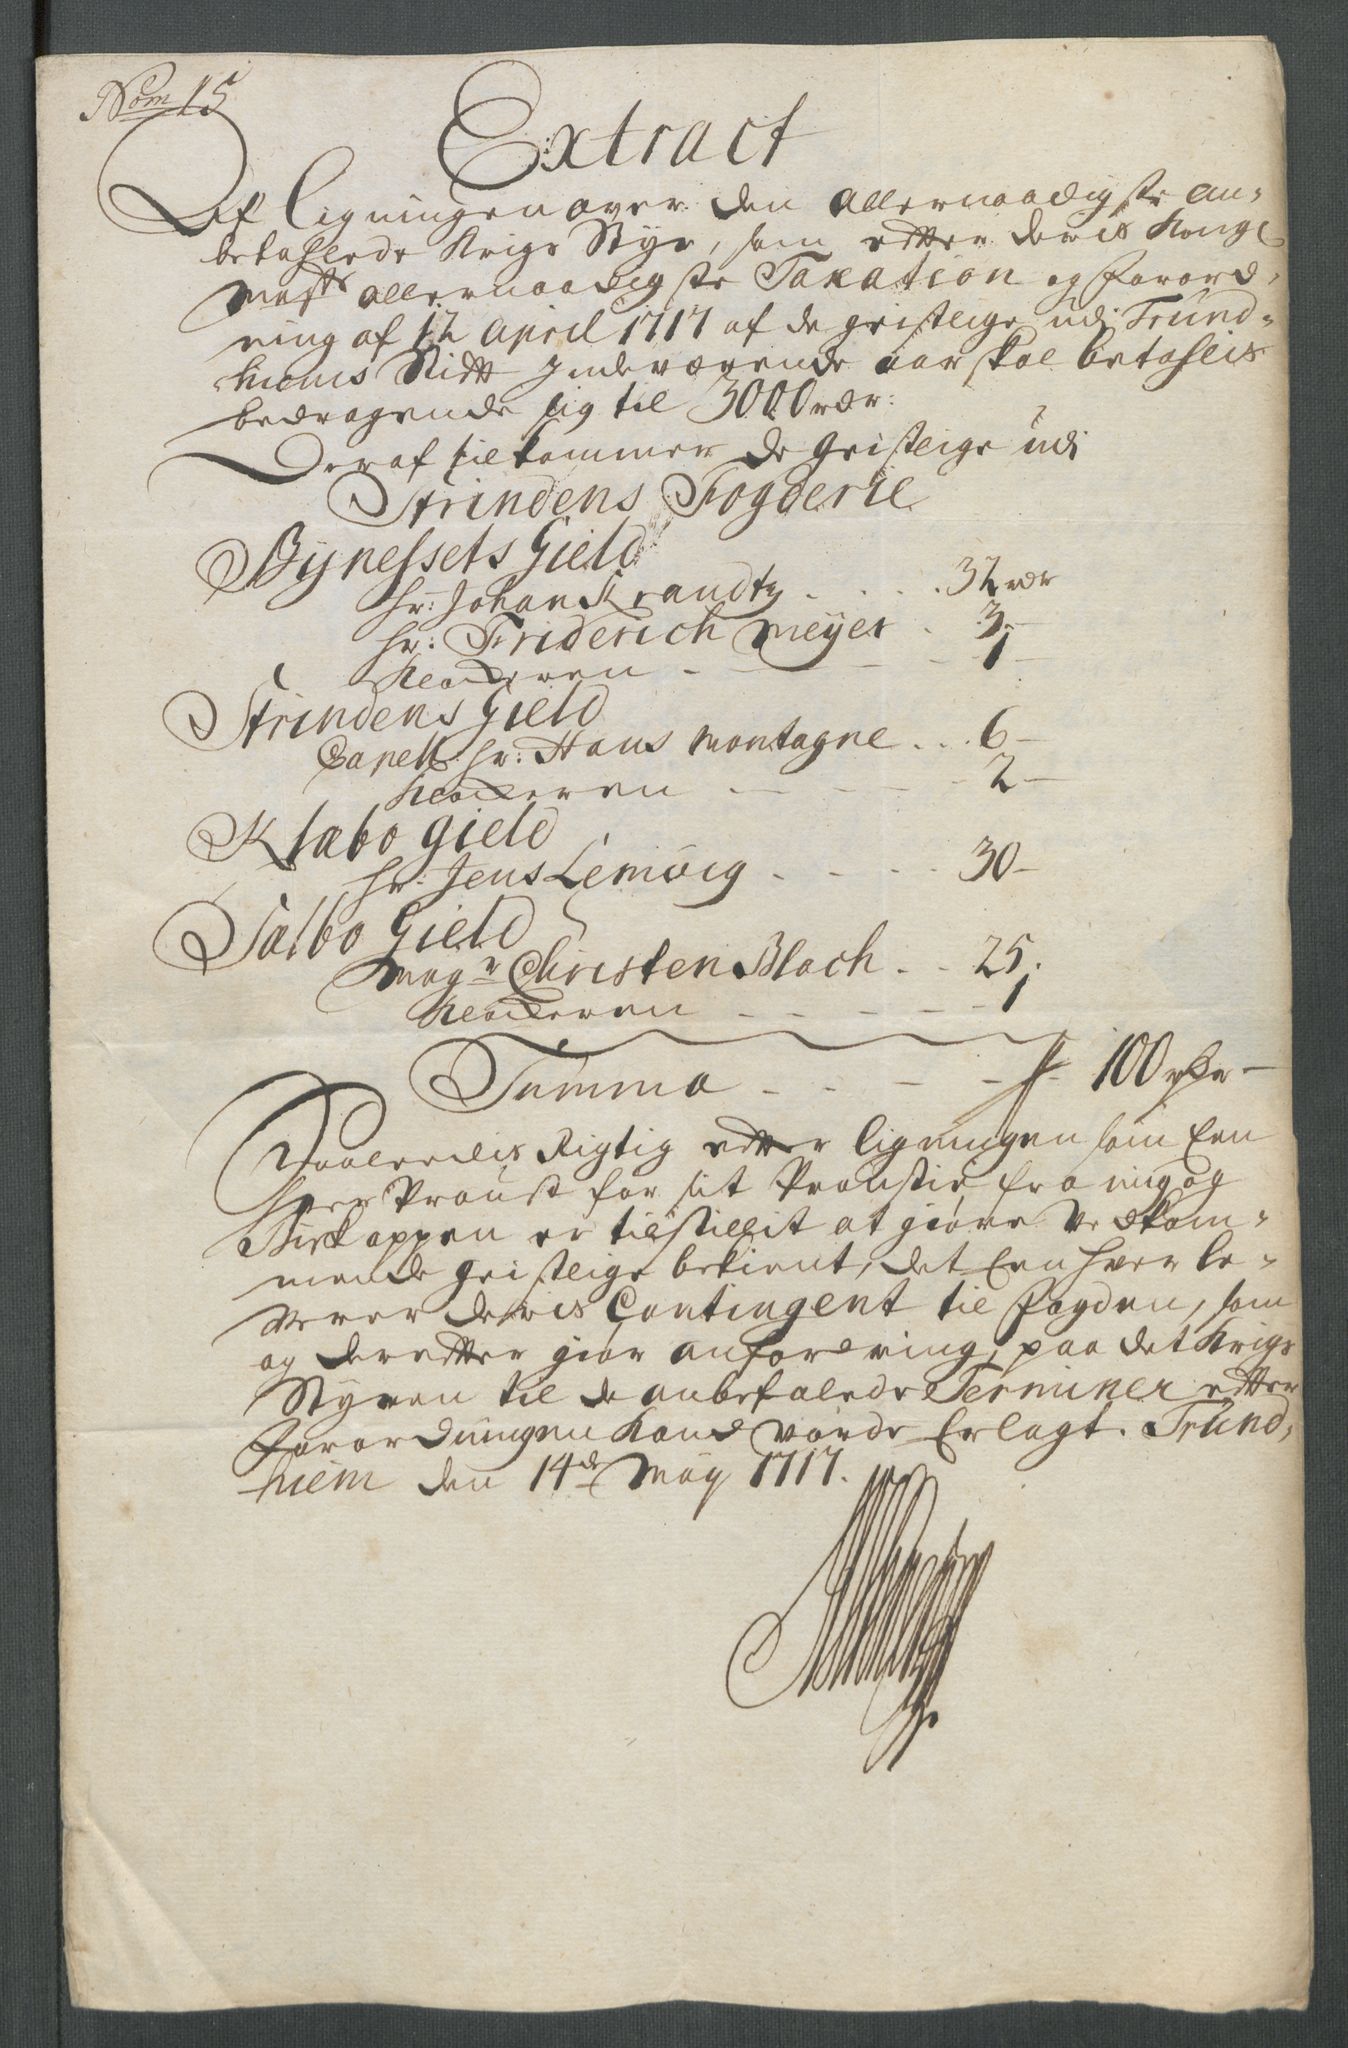 Nom 15
Extract
Af Ligningen over den allernaadigste an-
befahlede Krigs Styr, som efter deris Kongl
Maÿts allernaadigste Taxation og forord-
ning af 12 April 1717 af de geistlige udi Trund-
hiems Stidtt Indeværende aar skal betahlis
bedragende sig til 3000 rdr:
Deraf tilkommer de geistlige udi
Strindens Fogderie
Bynessets Gield
hr: Johan Krandtz . . . . 32 rdr
hr: Friderich Meyer . 3. —
Klockeren - - - - 1 —
Strindens Gield
Capell. hr: Hans Montagne . . . 6 —
Klockeren - - - - 2 —
Klæbo gield
hr: Jens Lemvig . . . . 30 —
Sælbo Gield
Magr Christen Blach . . 25.
Klockeren - - - - 1
Summa . . - - 100 rdr —
Saaledis Rigtig efter ligningen som Een
hver Proust for sit Proustie fra mig og
Biskoppen er tilstillit at giøre Vedkom-
mende geistlige bekient, det Een hver le-
verer deris Contingent til fogden, som
og derefter giør anfordring, paa det Krigs
Styren til de anbefalede Terminer efter
Forordningen Kand vorde Erlagt. Trund-
hiem den 14de Maÿ 1717.